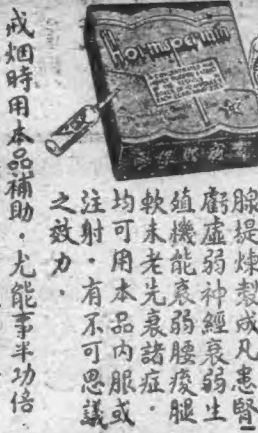 Hormospermin
腺提煉製成凡患腎
虧虛弱神經衰弱生
殖機能衰弱腰痠腿
軟未老先衰諸症．
均可用本品内服或
注射．有不可思議
之效力．
戒烟時用本品補助．尤能事半功倍．